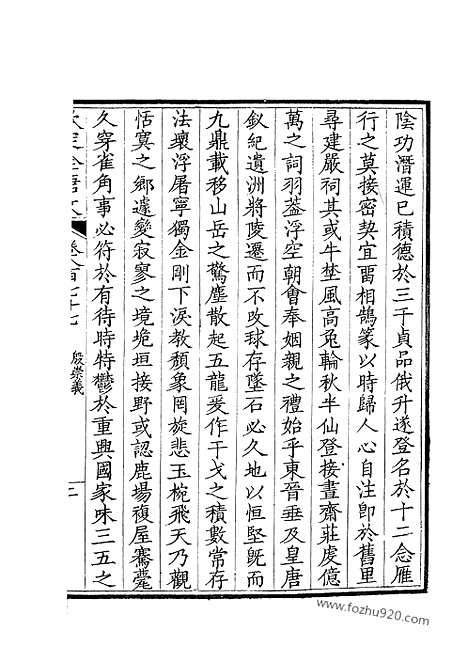 陰功潛運已積德於三子貞品俄升遂登名於十二念雁
行之莫接密契宜畱相鵠篆以時歸人心自注卽於舊里
尋建嚴祠其或牛埜風高兎輪秋半仙登接晝齋莊處億
萬之詞羽葢浮空朝會奉姻親之禮始乎東晉垂及皇唐
釵紀遺洲將陵遷而不改球存墜石必久地以恒堅旣而
九鼎載移山岳之驚塵散起五龍爰作干戈之積數常存
法壞浮屠寧獨金剛下淚教頹象罔旋悲玉椀飛天乃觀
恬寞之鄉遽變寂寥之境垝垣接野或認鹿場複屋騫甍
久穿雀角事必符於有待時特鬱於重興國家味三五之
欽定全唐文
卷八百七十七
殷崇義
www.fozhu920.com